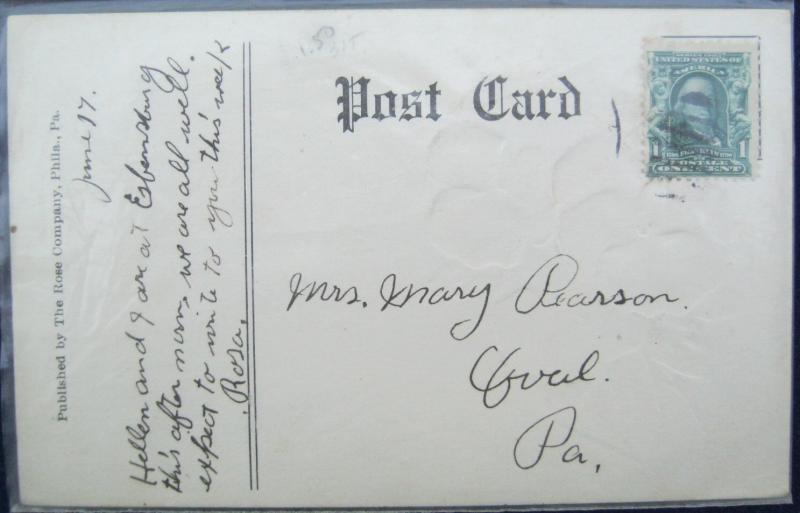 Post Card
SERIES 1902
UNITED STATES OF
AMERICA
1 FRANKLIN 1
POSTAGE
ONE CENT
Mrs. Mary Pearson.
Oval.
Pa.
June 17.
Hellen and I are at Esbensburg
this after noon, we are all well.
expect to write to you this week
Rosa.
Published by The Rose Company, Phila., Pa.